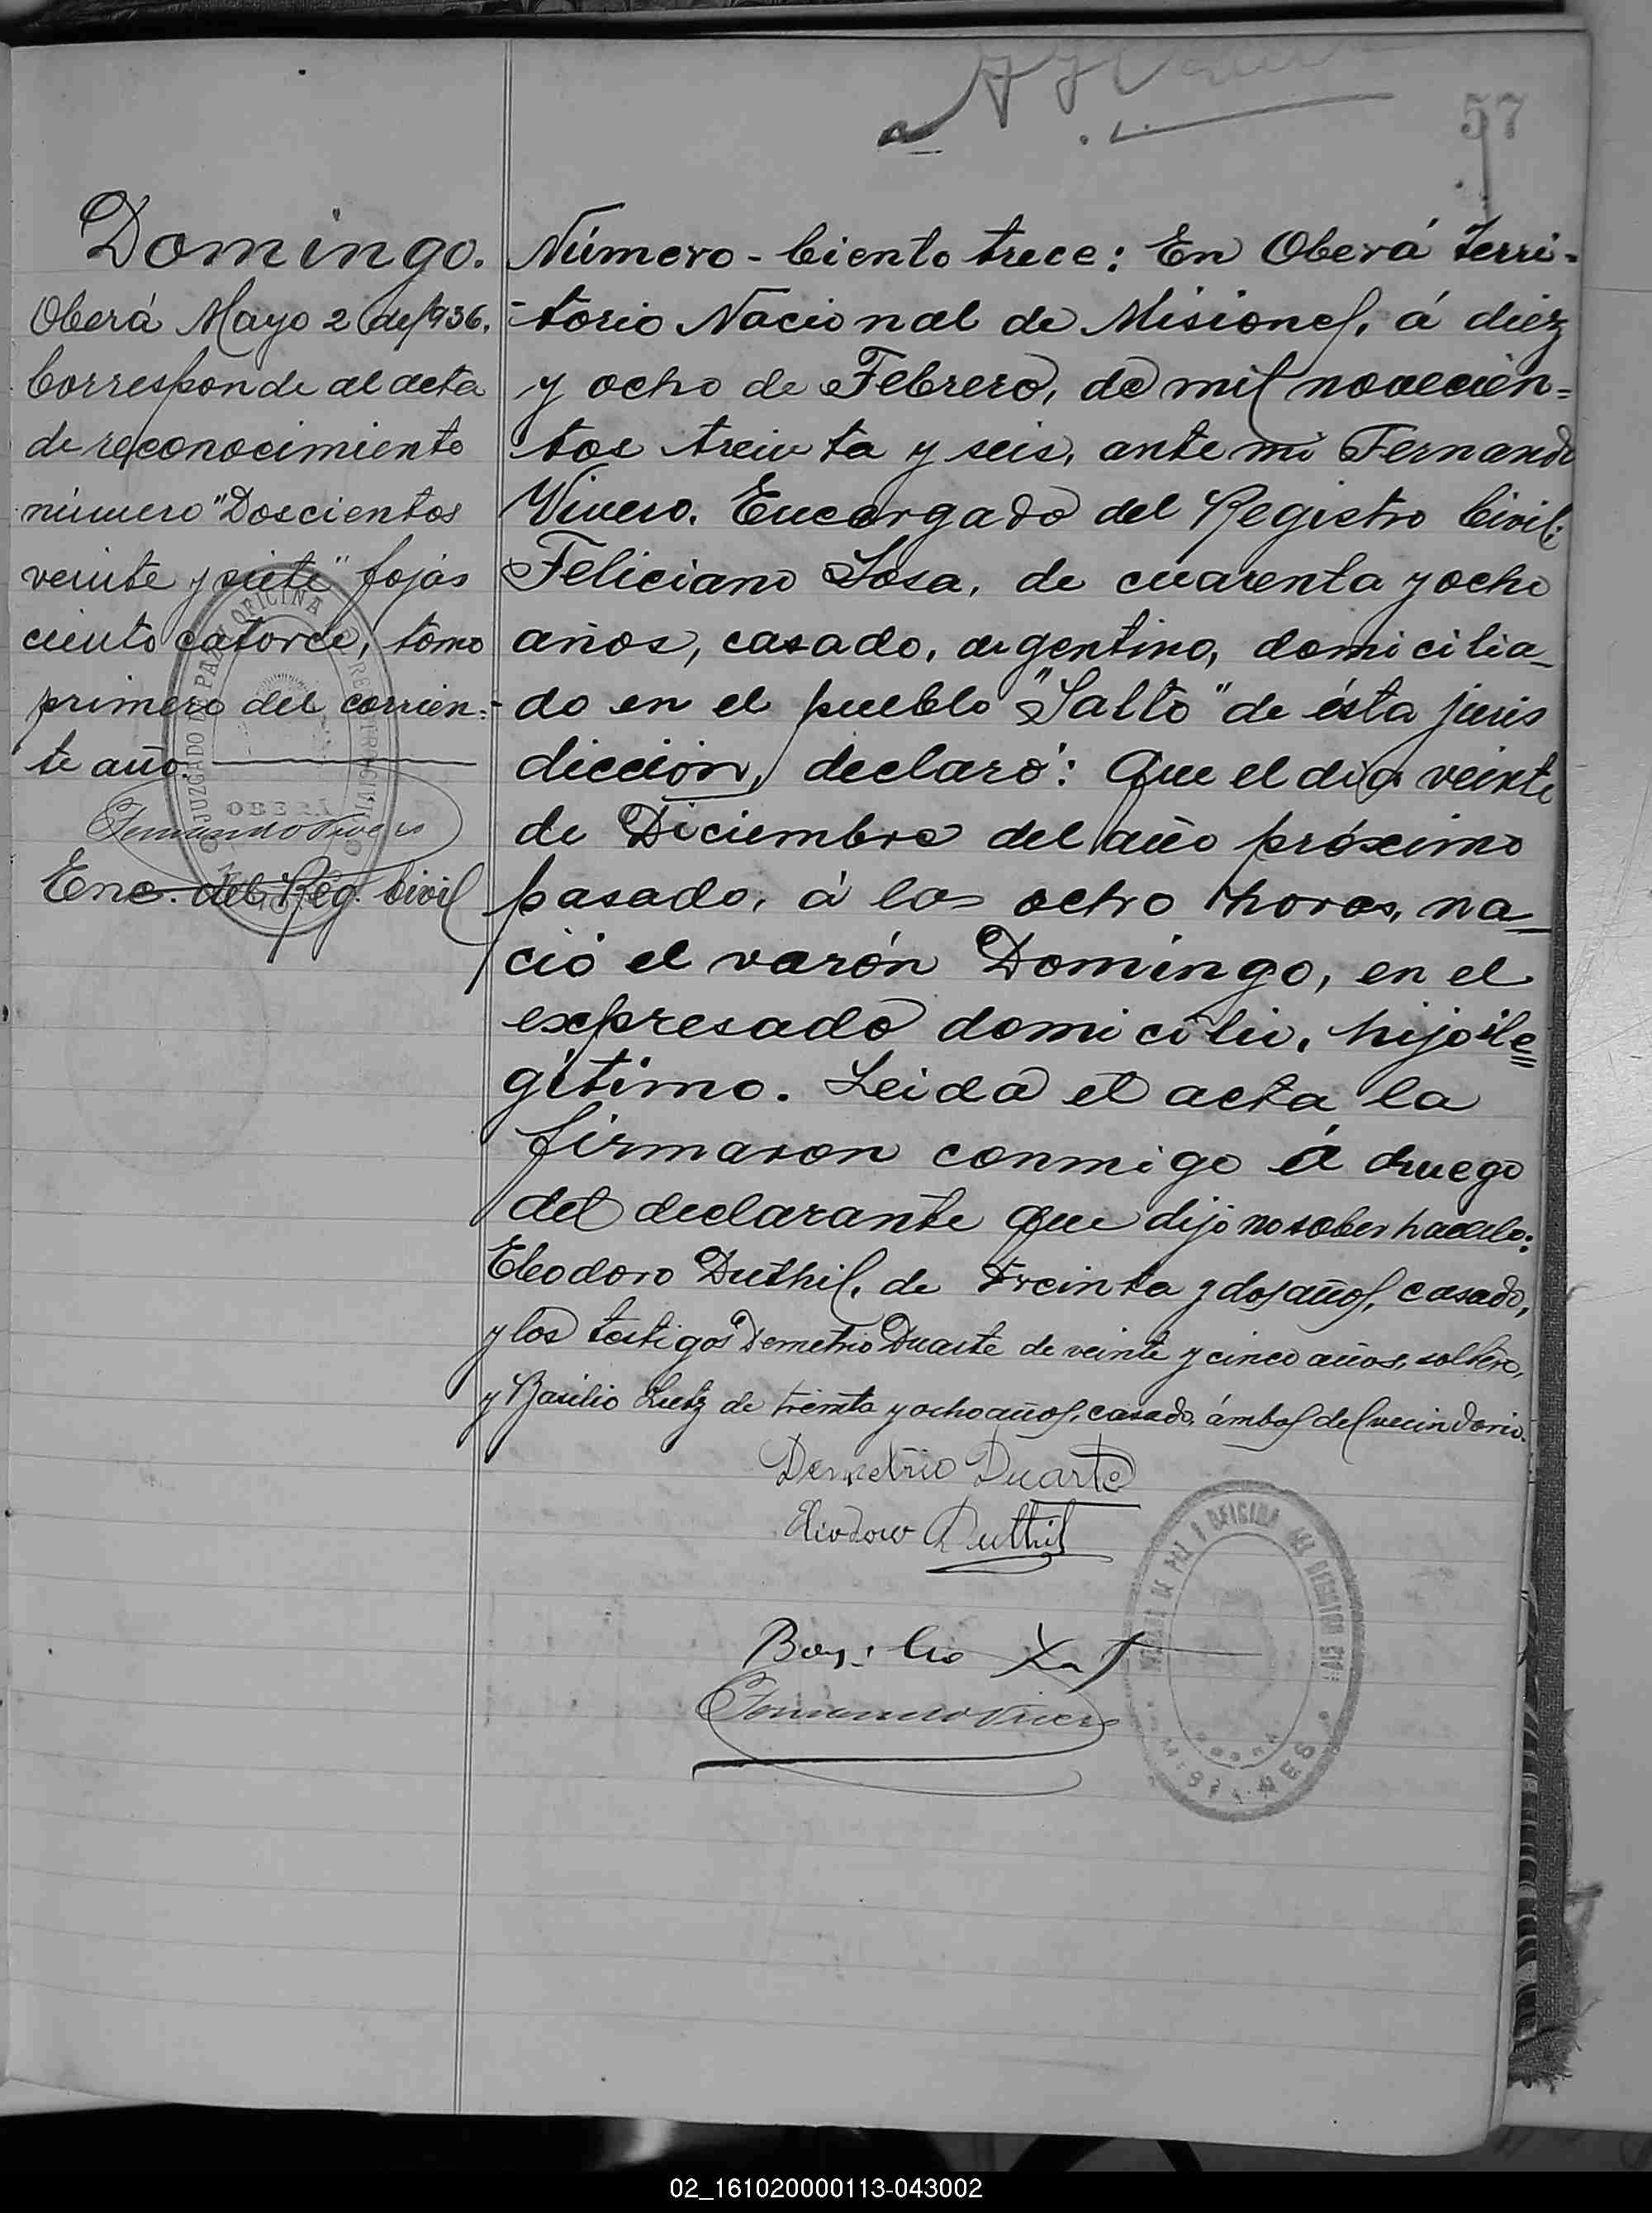 57
Domingo.
Oberá Mayo 2 de 1936.
Corresponde al acta
de reconocimiento
número "Doscientos
veinte y siete" fojas
ciento catorce, tomo
primero del corrien=
te año.
Fernando Vivero
Enc. del Reg. Civil
Número - Ciento trece: En Oberá Terri-
-torio Nacional de Misiones, á diez
y ocho de Febrero, de mil novecien=
tos treinta y seis, ante mi Fernando
Vivero. Encargado del Registro Civil;
Feliciano Sosa, de cuarenta y ocho
años, casado, argentino, domicilia-
do en el pueblo "Salto" de ésta juris
dicción, declaró: Que el dia veinte
de Diciembre del año próximo
pasado, á las ocho horas, na-
ció el varón Domingo, en el
expresado domicilio, hijo ile=
gítimo. Leida el acta la
firmaron conmigo á ruego
del declarante que dijo no saber hacerlo:
Eleodoro Duthil, de treinta y dos años, casado,
y los testigos Demetrio Duarte de veinte y cinco años, soltero,
y Basilio Lutz de treinta y ocho años, casado, ámbos del vecindario.
Demetrio Duarte
Eliodoro Duthil
Basilio
Fernando Vivero
JUZGADO DE PAZ Y OFICINA DEL REGISTRO CIVIL
OBERÁ
MISIONES
02_161020000113-043002